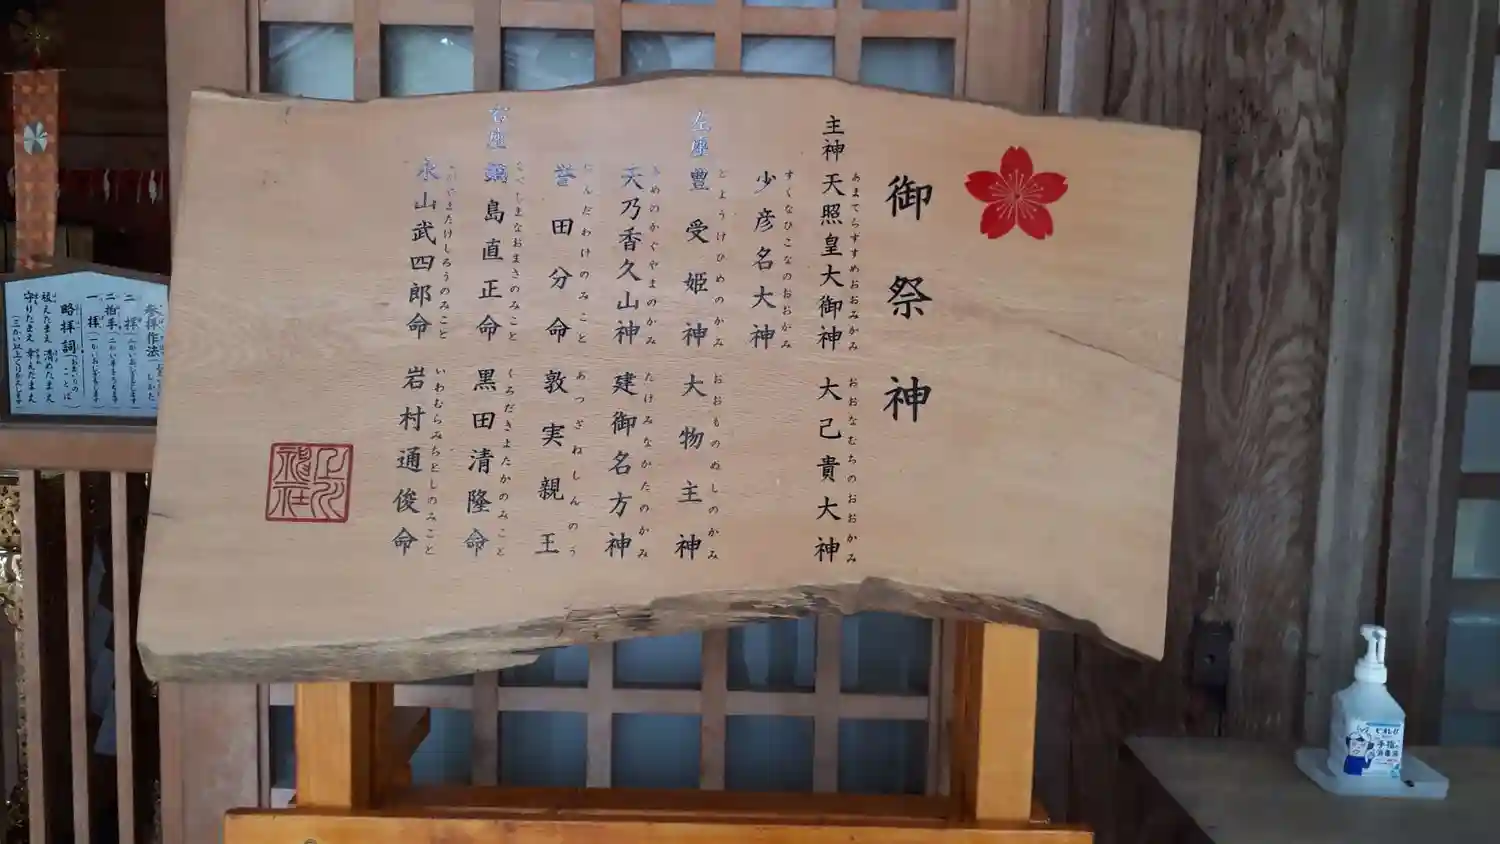 御祭神
主神 天照皇大御神 大己貴大神
あまてらすすめおおみかみ おおなむちのおおかみ
少彦名大神
すくなひこなのおおかみ
左座 豊受姫神 大物主神
とようけひめのかみ おおものぬしのかみ
天乃香久山神 建御名方神
あめのかぐやまのかみ たけみなかたのかみ
誉田分命 敦実親王
ほんだわけのみこと あつざねしんのう
右座 鍋島直正命 黒田清隆命
なべしまなおまさのみこと くろだきよたかのみこと
永山武四郎命 岩村通俊命
ながやまたけしろうのみこと いわむらみちとしのみこと
上川神社
参拝作法
二拝
二拍手
一拝
略拝詞
祓えたまえ 清めたまえ
守りたまえ 幸えたまえ
ビオレu
手指の
消毒液